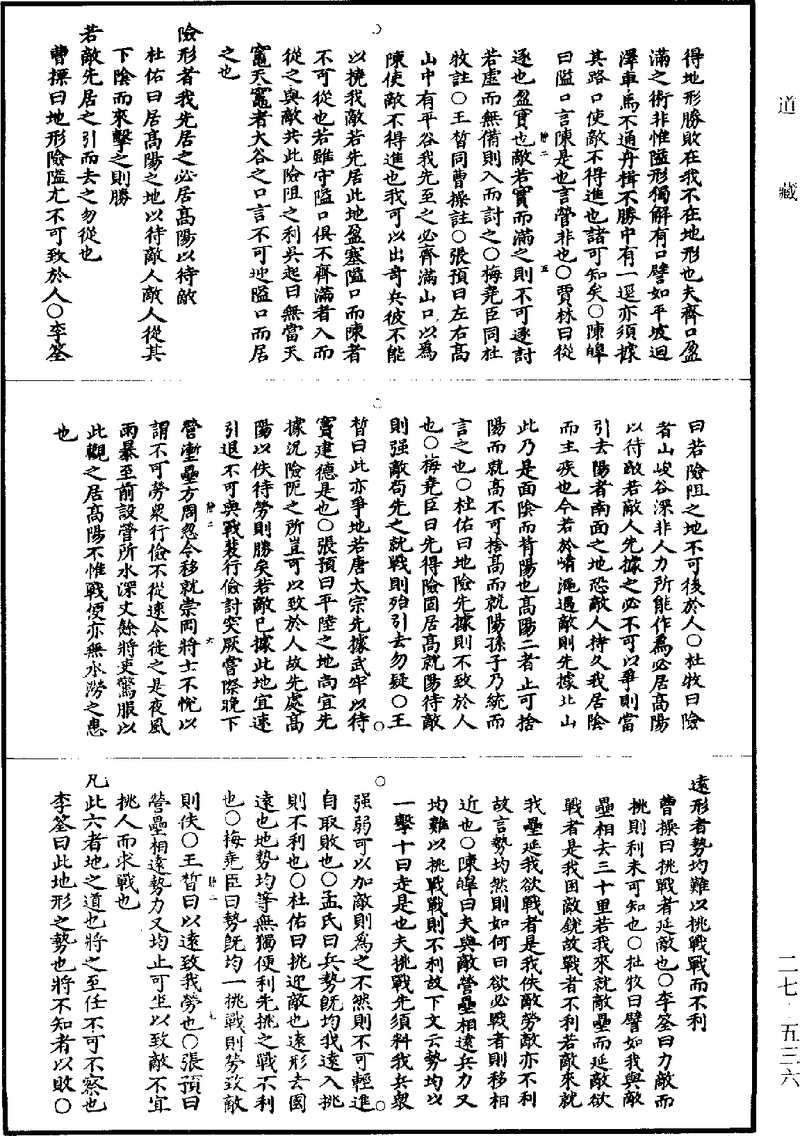 道藏
得地形勝敗在我不在地形也夫齊口盈
滿之術非惟隘形獨解有口譬如平坡迴
澤車馬不通舟楫不勝中有一逕亦須據
其路口使敵不得進也諸可知矣○陳皞
曰隘口言陳是也言營非也○賈林曰從
逐也盈實也敵若實而滿之則不可逐討
若虛而無備則入而討之○梅堯臣同杜
牧註○王晳同曹操註○張預曰左右高
山中有平谷我先至之必齊滿山口以為
陳使敵不得進也我可以出奇兵彼不能
以撓我敵若先居此地盈塞隘口而陳者
不可從也若雖守隘口俱不齊滿者入而
從之與敵共此險阻之利吳起曰無當天
竈天竈者大谷之口言不可迎隘口而居
之也
險形者我先居之必居高陽以待敵
杜佑曰居高陽之地以待敵人敵人從其
下陰而來擊之則勝
若敵先居之引而去之勿從也
曹操曰地形險隘尤不可致於人○李筌
曰若險阻之地不可後於人○杜牧曰險
者山峻谷深非人力所能作為必居高陽
以待敵若敵人先據之必不可以爭則當
引去陽者南面之地恐敵人持久我居陰
而生疾也今若於崤澠遇敵則先據北山
此乃是面陰而背陽也高陽二者止可捨
陽而就高不可捨高而就陽孫子乃統而
言之也○杜佑曰地險先據則不致於人
也○梅堯臣曰先得險固居高就陽待敵
則强敵苟先之就戰則殆引去勿疑○王
晳曰此亦爭地若唐太宗先據武牢以待
竇建德是也○張預曰平陸之地尚宜先
據況險阨之所豈可以致於人故先處高
陽以佚待勞則勝矣若敵已據此地宜速
引退不可與戰裴行儉討突厥嘗際晚下
營漸壘方周忽令移就崇岡將士不悅以
謂不可勞衆行儉不從速令徙之是夜風
雨暴至前設營所水深丈餘將吏驚服以
此觀之居高陽不惟戰便亦無水澇之患
也
遠形者勢均難以挑戰戰而不利
曹操曰挑戰者延敵也○李筌曰力敵而
挑則利未可知也○杜牧曰譬如我與敵
壘相去三十里若我來就敵壘而延敵欲
戰者是我困敵銳故戰者不利若敵來就
我壘延我欲戰者是我佚敵勞敵亦不利
故言勢均然則如何曰欲必戰者則移相
近也○陳皞曰夫與敵營壘相遠兵力又
均難以挑戰戰則不利故下文云勢均以
一擊十曰走是也夫挑戰先須料我兵衆
强弱可以加敵則為之不然則不可輕進
自取敗也○孟氏曰兵勢既均我遠入挑
則不利也○杜佑曰挑迎敵也遠形去國
遠也地勢均等無獨便利先挑之戰不利
也○梅堯臣曰勢既均一挑戰則勞致敵
則佚○王晳曰以遠致我勞也○張預曰
營壘相遠勢力又均止可坐以致敵不宜
挑人而求戰也
凡此六者地之道也將之至任不可不察也
李筌曰此地形之勢也將不知者以敗○
二七·五三六